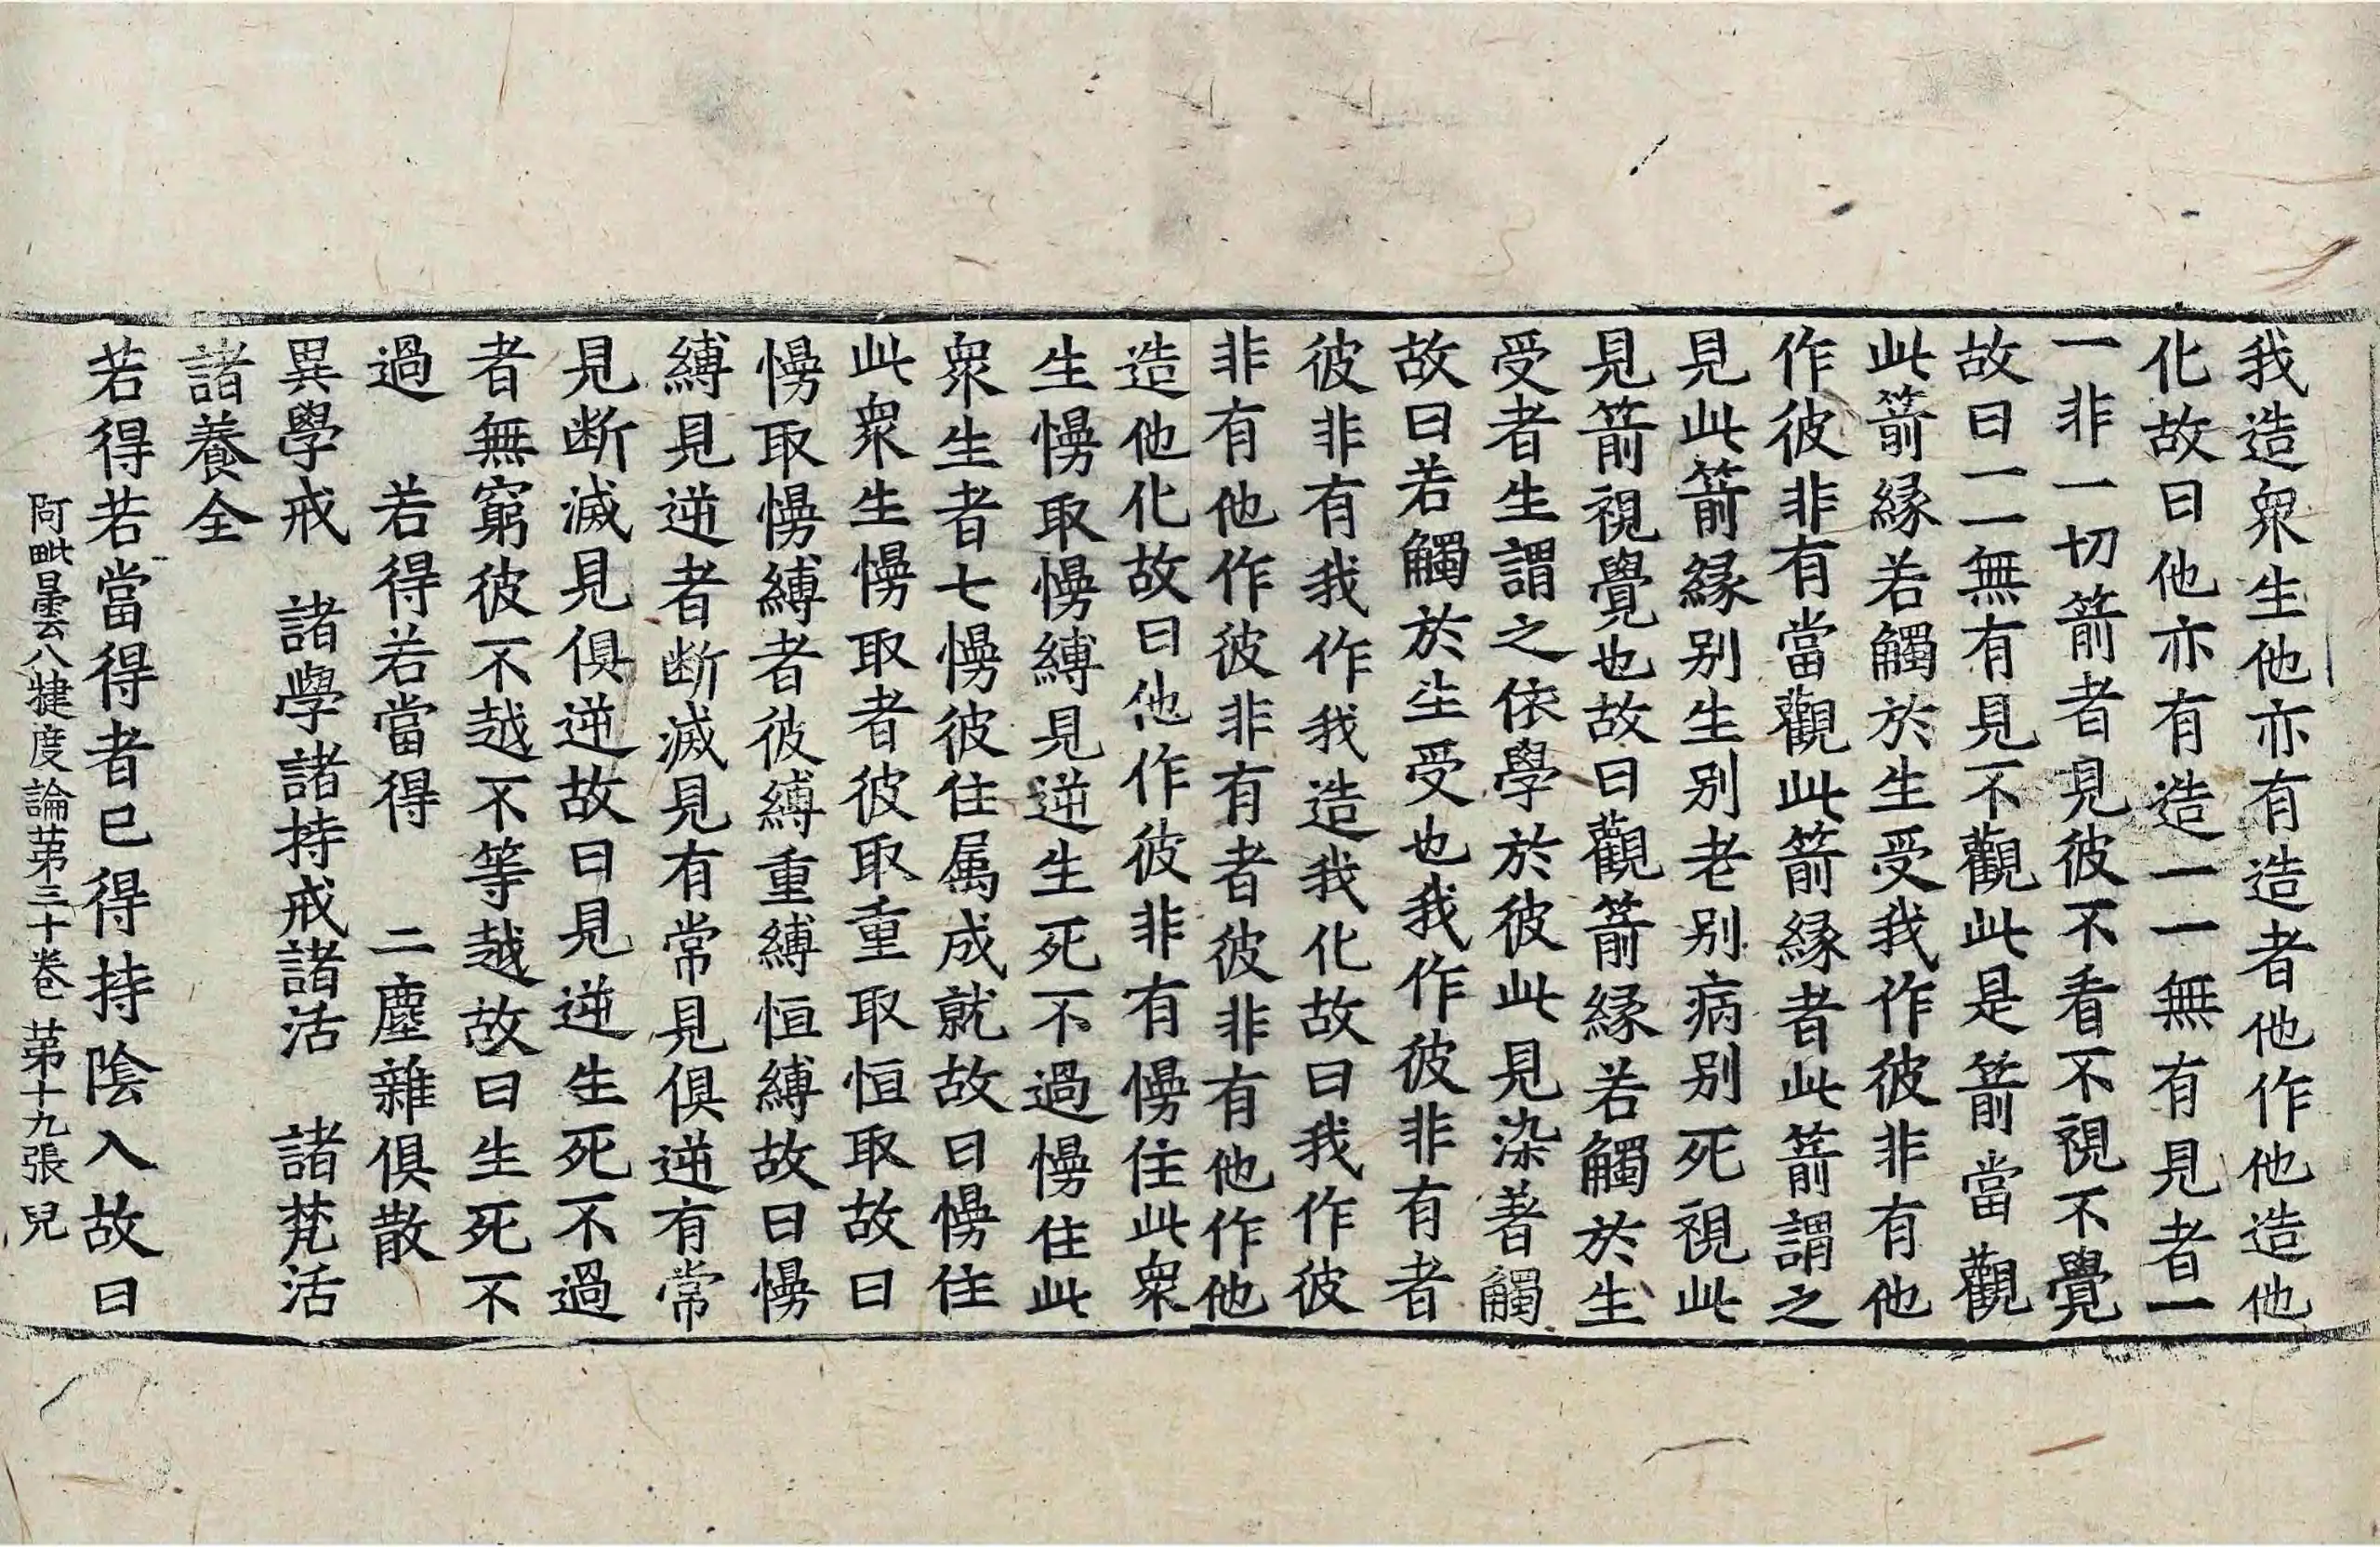 我造衆生他亦有造者他作他造他
化故曰他亦有造一一無有見者一
一非一切箭者見彼不看不視不覺
故曰一一無有見不觀此是箭當觀
此箭緣若觸於生受我作彼非有他
作彼非有當觀此箭緣者此箭謂之
見此箭緣别生别老别病别死視此
見箭視覺也故曰觀箭緣若觸於生
受者生謂之依學於彼此見染著觸
故曰若觸於生受也我作彼非有者
彼非有我作我造我化故曰我作彼
非有他作彼非有者彼非有他作他
造他化故曰他作彼非有慢住此衆
生慢取慢縛見逆生死不過慢住此
衆生者七慢彼住属成就故曰慢住
此衆生慢取者彼取重取恒取故曰
慢取慢縛者彼縛重縛恒縛故曰慢
縛見逆者断滅見有常見俱逆有常
見断滅見俱逆故曰見逆生死不過
者無窮彼不越不等越故曰生死不
過　若得若當得　二塵雜俱散
異學戒　諸學諸持戒諸活　諸梵活
諸養全
若得若當得者已得持陰入故曰
阿毗曇八犍度論苐三十卷　苐十九張　兒